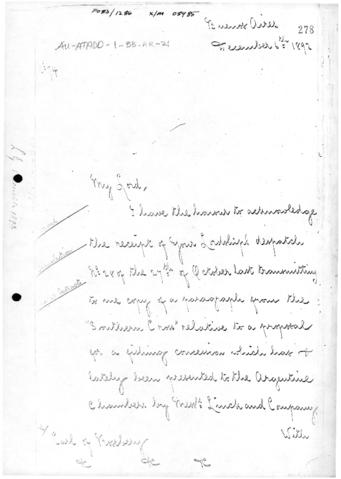 FO82/1286 X/M 08985
Buenos Aires 278
December 6th 1892
AU-ATADD-1-BB-AR-21
My Lord,
I have the honour to acknowledge
the receipt of Your Lordship's despatch
No 28 of the 27th of October last transmitting
to me copy of a paragraph from the
"Southern Cross" relative to a proposal
for a fishing concession which has
lately been presented to the Argentine
Chambers by Messrs Linck and Company
With
Earl of Rosebery
&c &c &c